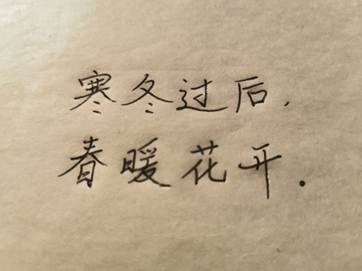 寒冬过后,
春暖花开.